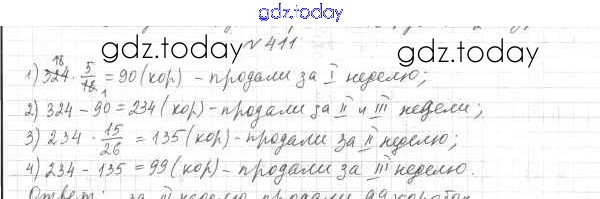 gdz.today
№ 411
gdz.today gdz.today
1) 324 · 5/18 = 90 (кор) - продали за I неделю;
2) 324 - 90 = 234 (кор) - продали за II и III недели;
3) 234 · 15/26 = 135 (кор) - продали за II неделю;
4) 234 - 135 = 99 (кор) - продали за III неделю.
Ответ: за III неделю продали 99 коробок